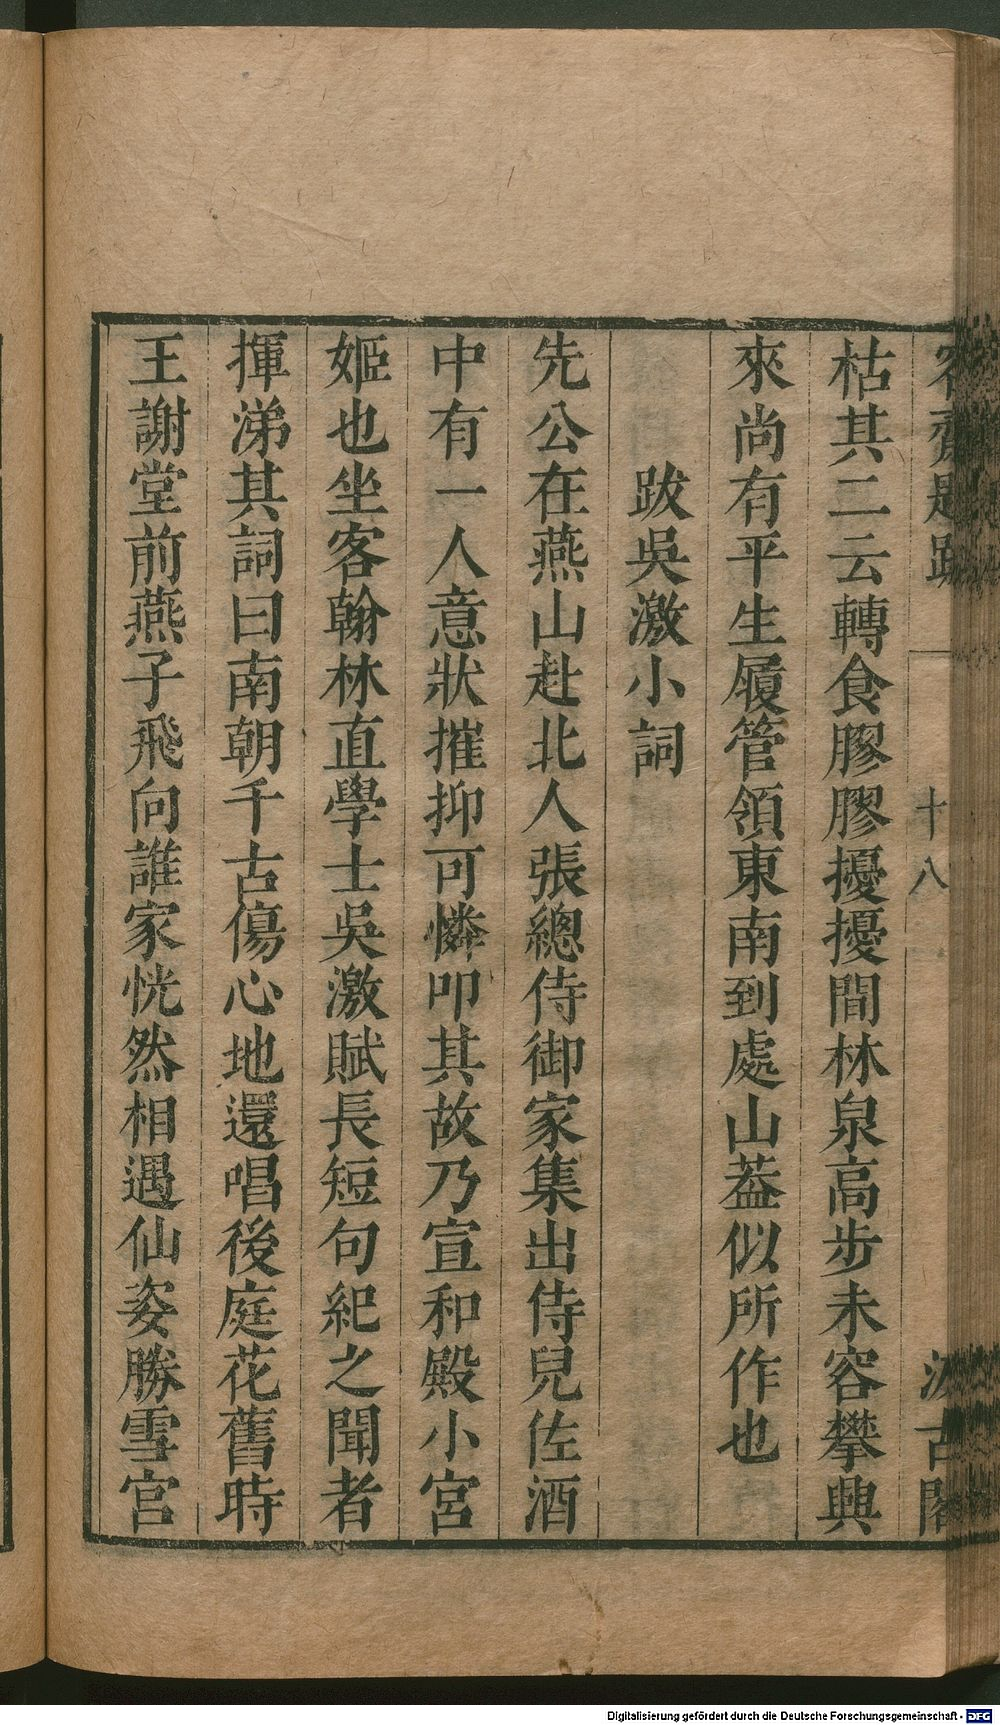 容齋題跋 十八 汲古閣
枯其二云轉食膠膠擾擾間林泉高步未容攀興
來尚有平生履管領東南到處山葢似所作也
跋吳激小詞
先公在燕山赴北人張總侍御家集出侍兒佐酒
中有一人意狀摧抑可憐叩其故乃宣和殿小宮
姬也坐客翰林直學士吳激賦長短句紀之聞者
揮涕其詞曰南朝千古傷心地還唱後庭花舊時
王謝堂前燕子飛向誰家恍然相遇仙姿勝雪宮
Digitalisierung gefördert durch die Deutsche Forschungsgemeinschaft - DFG